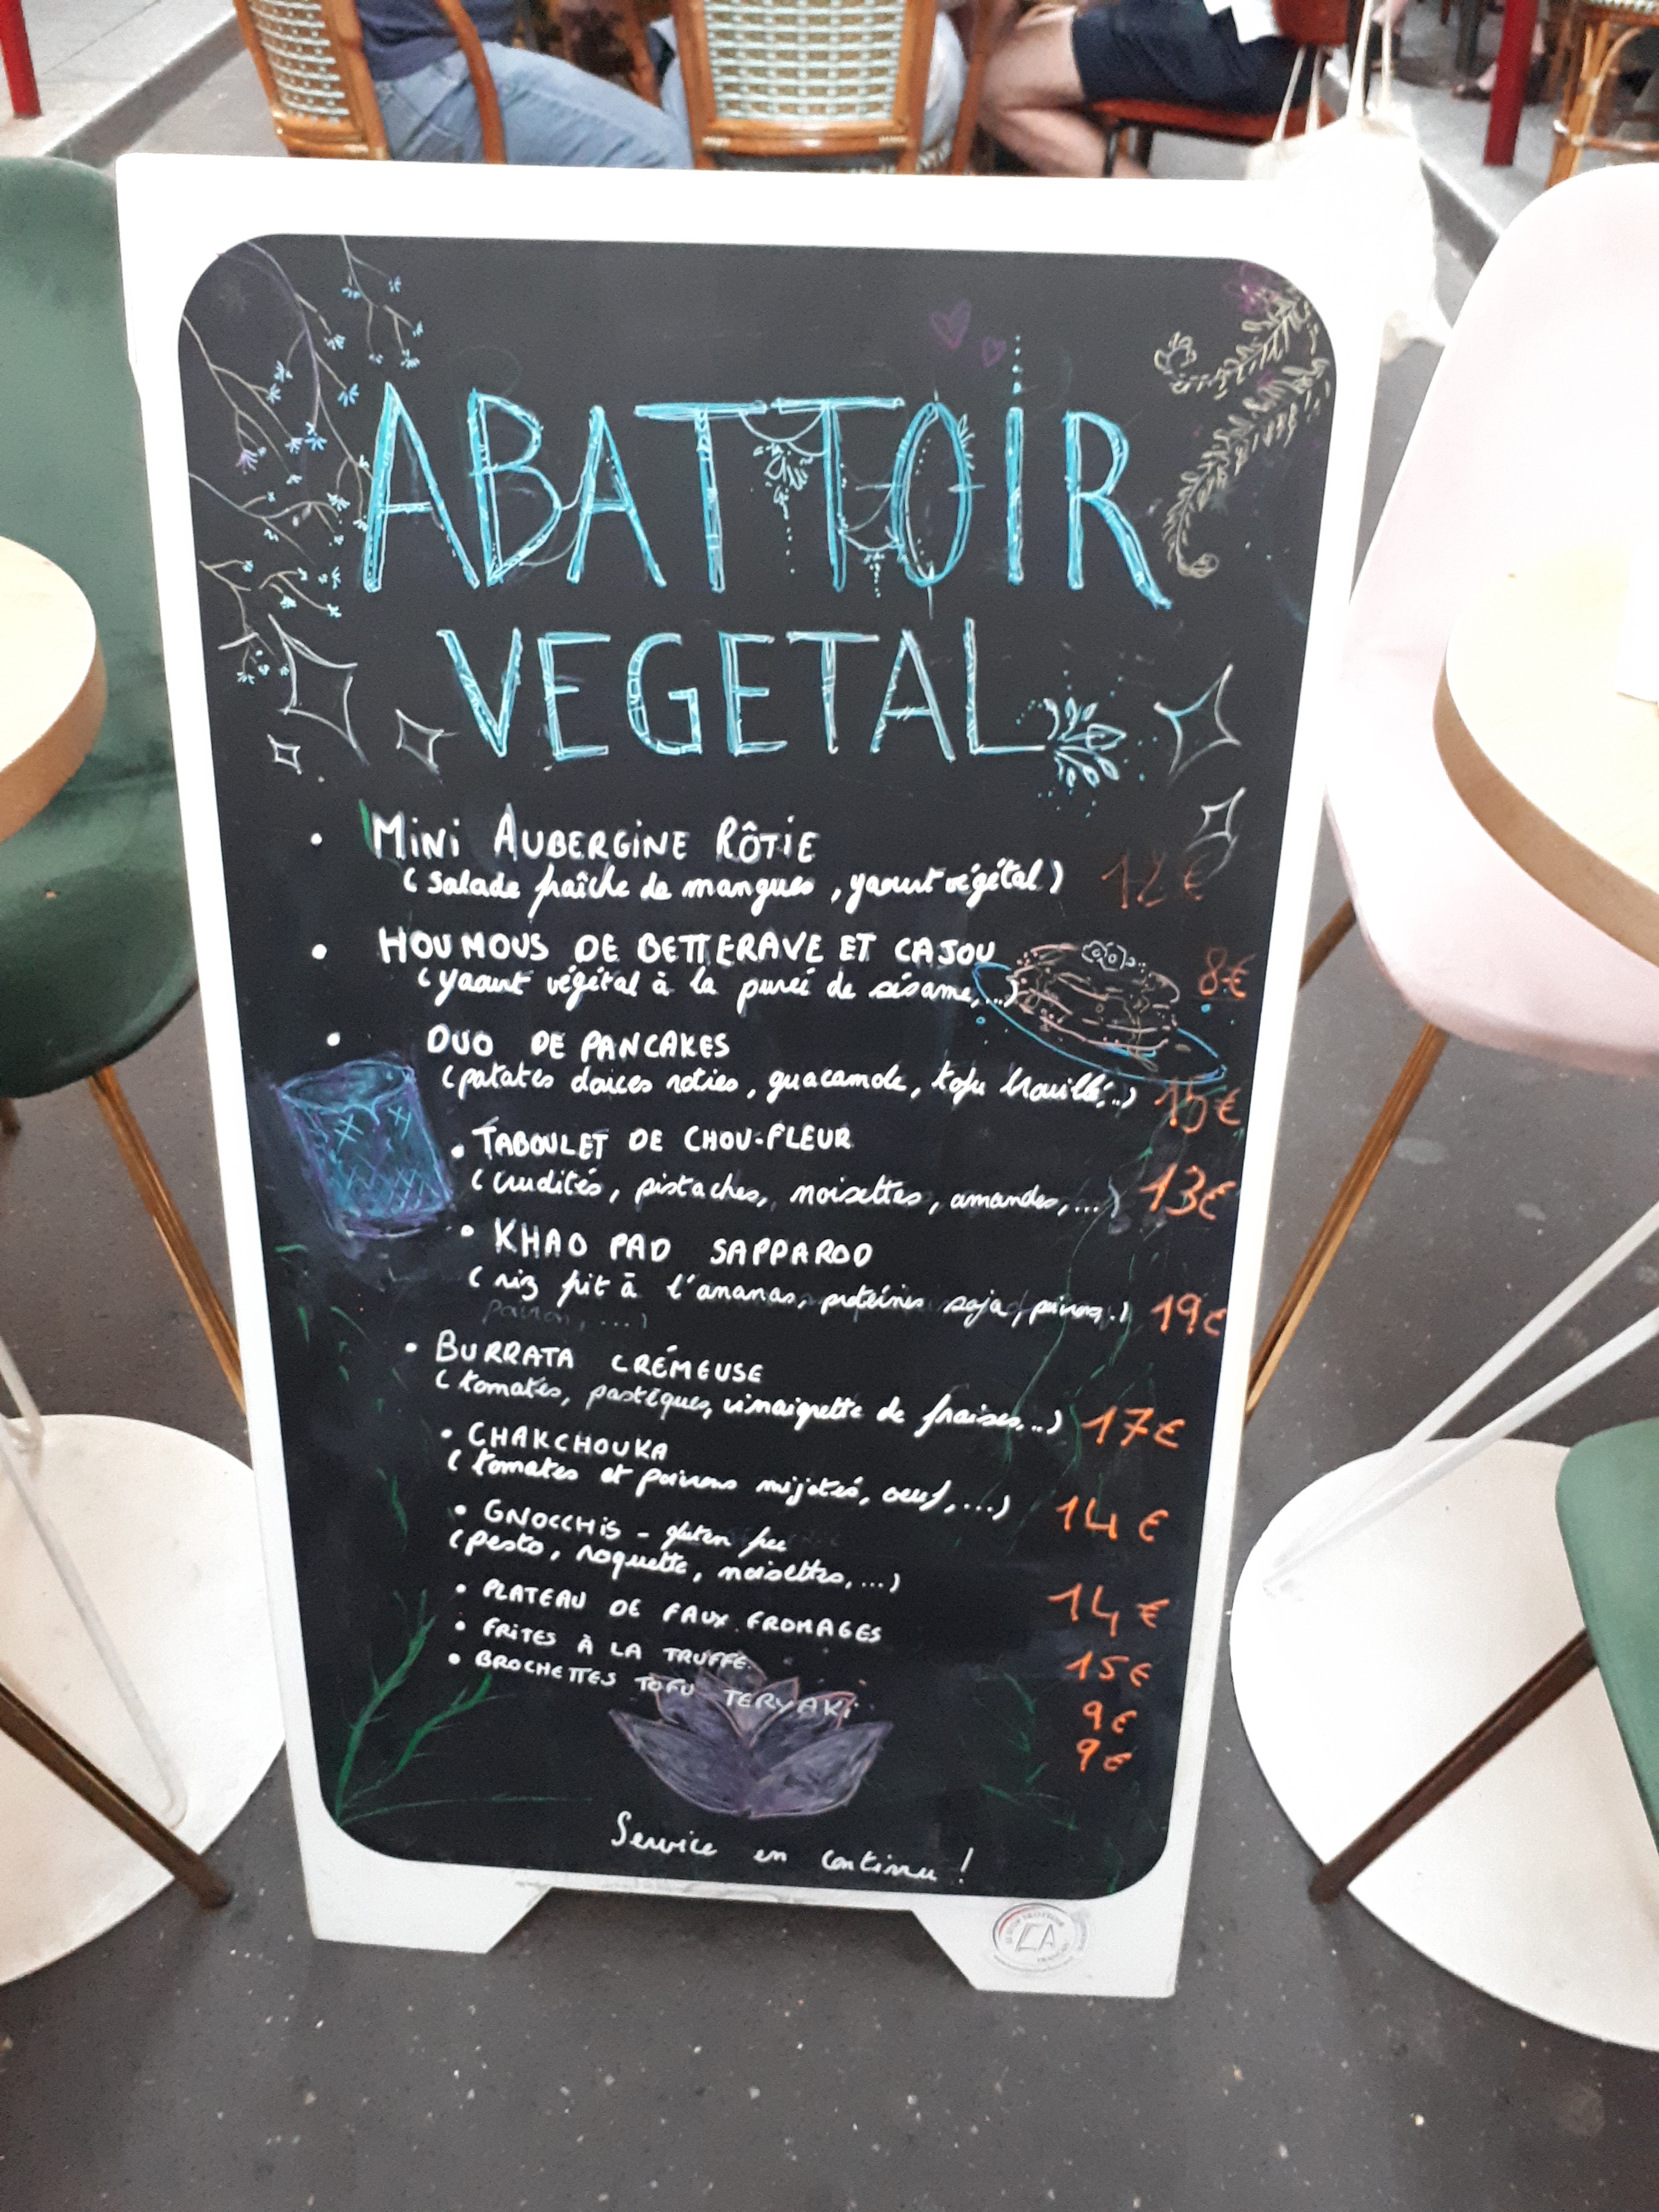 ABATTOIR
VEGETAL
• MINI AUBERGINE RÔTIE
(salade fraîche de mangues, yaourt végétal) 12€
• HOUMOUS DE BETTERAVE ET CAJOU
(yaourt végétal à la pureé de sésame,...) 8€
• DUO DE PANCAKES
(patates douces roties, guacamole, tofu brouillé,..) 15€
• TABOULET DE CHOU-FLEUR
(crudités, pistaches, noisettes, amandes,...) 13€
• KHAO PAD SAPPAROD
(riz frit à l'ananas, protéines soja, poivron,.) 19€
poivron, ...)
• BURRATA CRÉMEUSE
(tomates, pastèques, vinaigrette de fraises,..) 17€
• CHAKCHOUKA
(tomates et poivrons mijotés, oeuf,...) 14€
• GNOCCHIS - gluten free
(pesto, roquette, noisettes,...) 14€
• PLATEAU DE FAUX FROMAGES 15€
• FRITES À LA TRUFFE 9€
• BROCHETTES TOFU TERYAKI 9€
Service en continu !